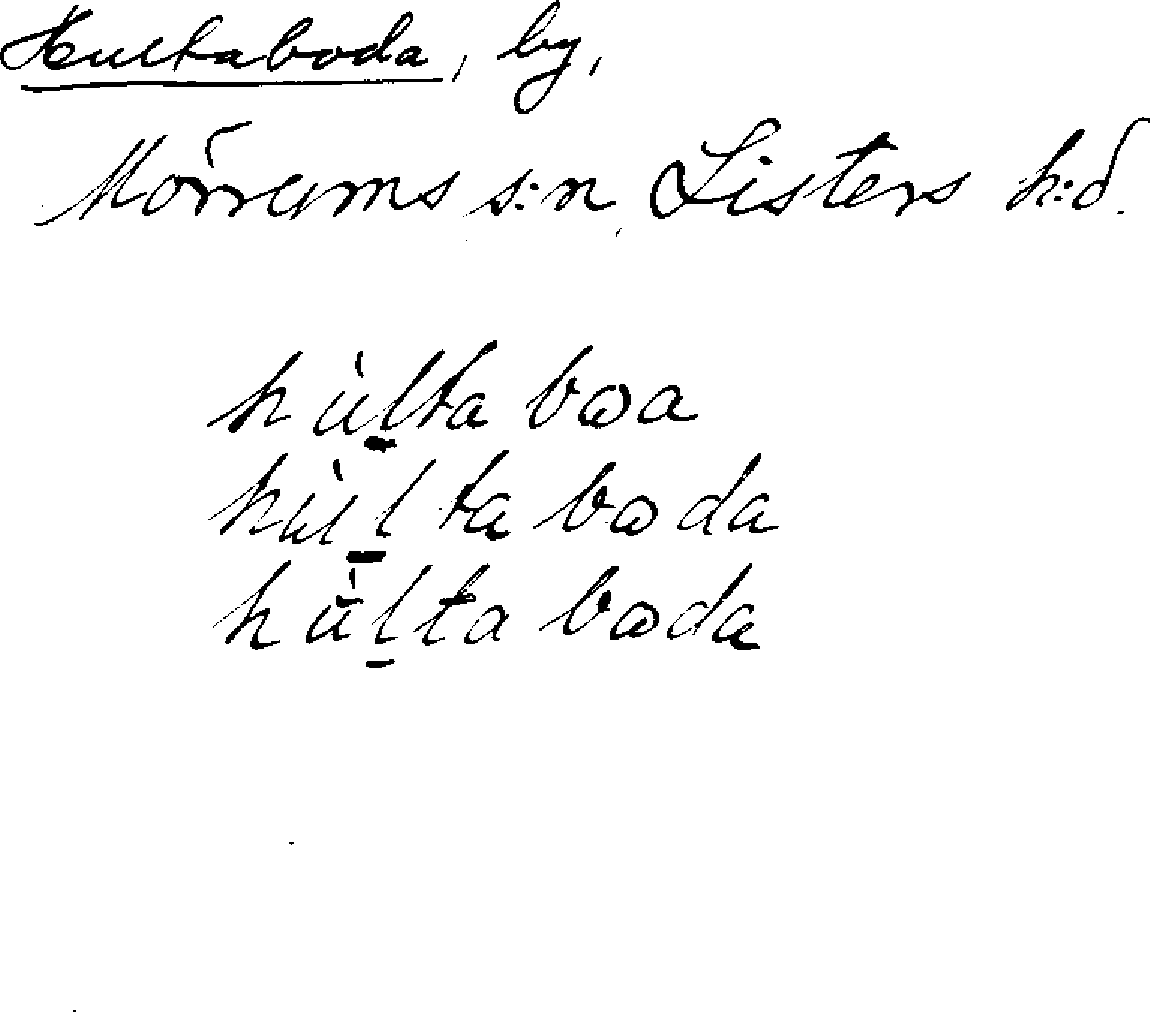 Hultaboda, by,
Mörrums s:n, Listers h:d.
hùl̠ta bωa
hùl̠ta bωda
hùl̠ta bωda